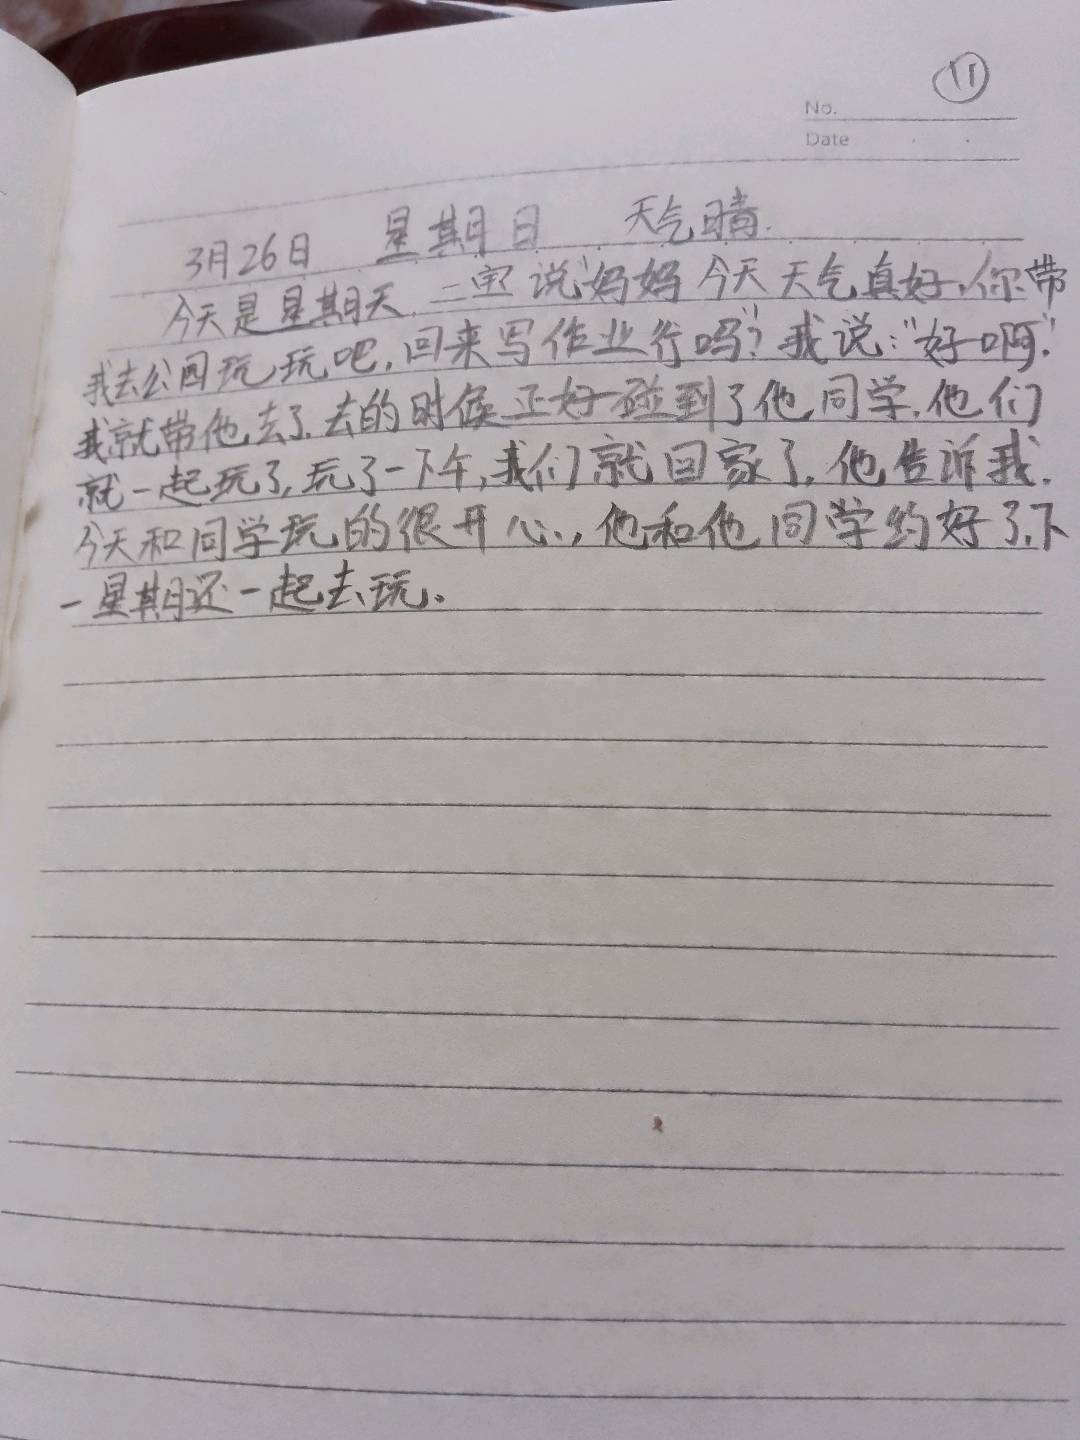 11
No.
Date
3月26日 星期日 天气晴.
今天是星期天.二宝说“妈妈今天天气真好,你带
我去公园玩玩吧,回来写作业行吗”?我说:“好啊”.
我就带他去了.去的时候正好碰到了他同学.他们
就一起玩了,玩了一下午,我们就回家了.他告诉我.
今天和同学玩的很开心.,他和他同学约好了.下
一星期还一起去玩。